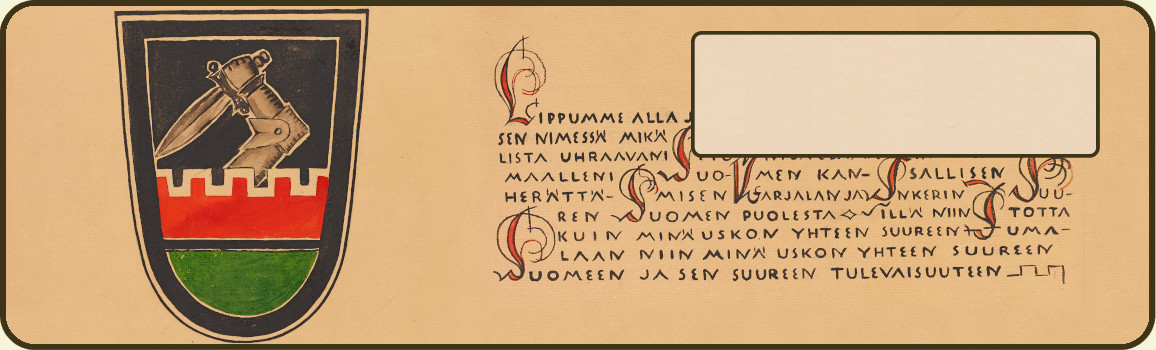 LIPPUMME ALLA
SEN NIMESSÄ MIKÄ
LISTA UHRAAVANI
MAALLENI SUO-MEN KAN-SALLISEN
HERÄTTÄ-MISEN KARJALAN JA INKERIN SUU-
REN SUOMEN PUOLESTA SILLÄ NIIN TOTTA
KUIN MINÄ USKON YHTEEN SUUREEN JUMA-
LAAN NIIN MINÄ USKON YHTEEN SUUREEN
SUOMEEN JA SEN SUUREEN TULEVAISUUTEEN